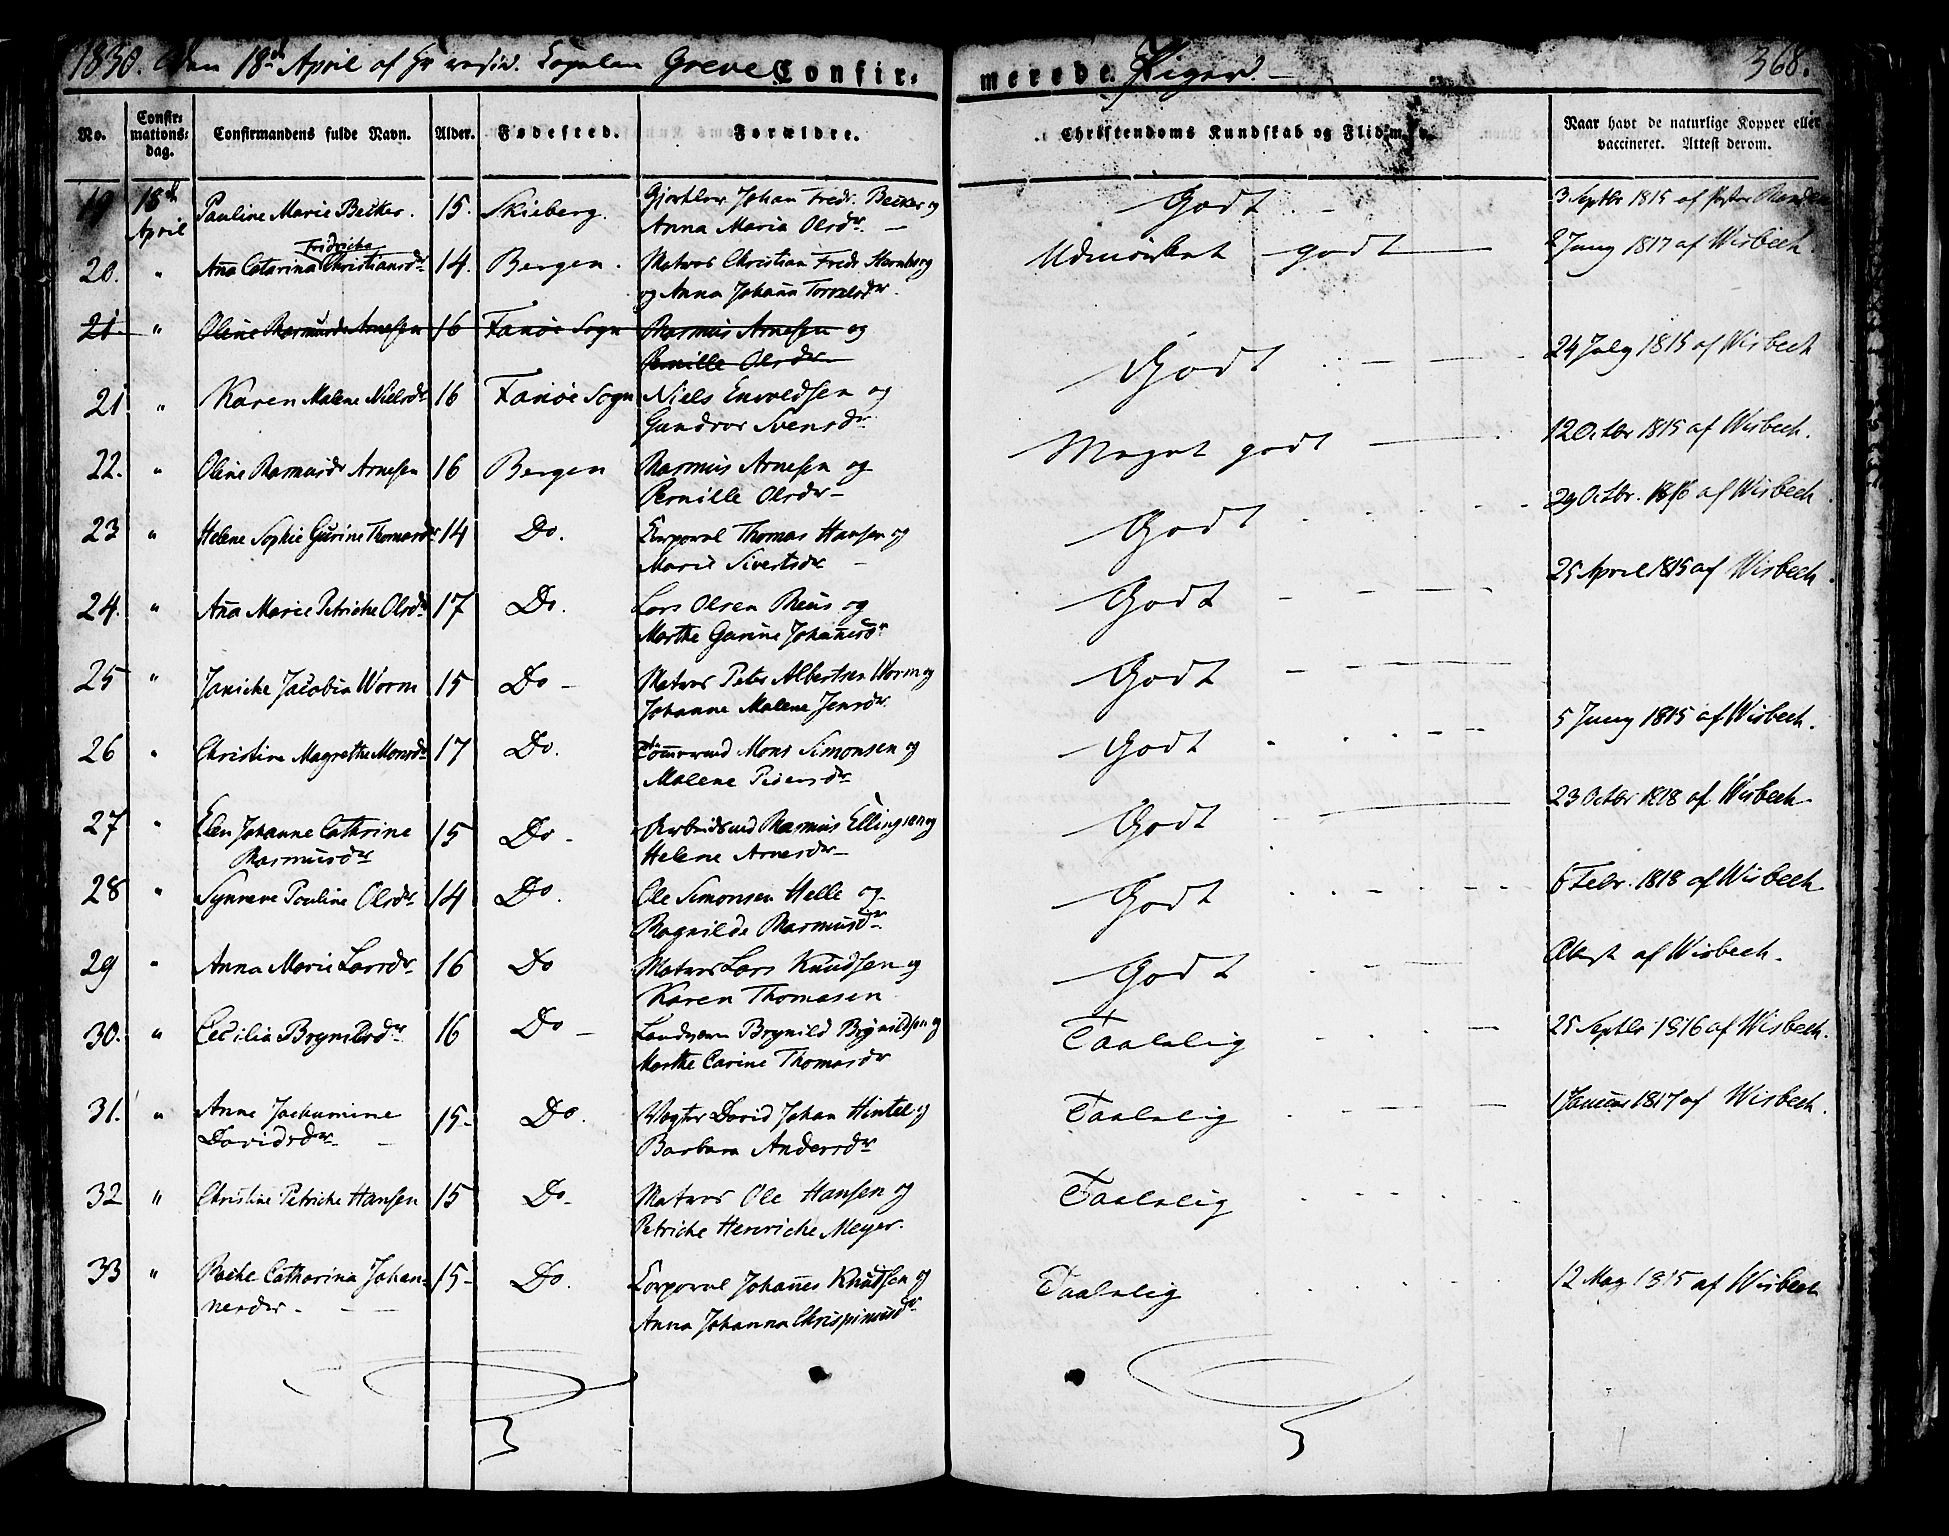 1830. den 18de April af Hr resid. Capelan Greve Confirmerede Piger. 368.
No. Confirmationsdag. Confirmandens fulde Navn. Alder. Fødested. Forældre. Christendoms Kundskab og Flid. Naar havt de naturlige Kopper eller vaccineret. Attest derom.
19 18de April Pauline Marie Becker. 15. Skieberg. Johan Fredr. Becker og Godt 3 Septbr 1815 af
Anna Maria Olsdr.
20. " Ana Catarina Fridricha Christiansdr 14. Bergen. Matros Christian Fredr og Udmærket godt 2 Juny 1817 af Wisbech
og Anna Johana
21. " Oline Rasmusdr Arnesen 16 Fanöe Sogn Rasmus Arnesen og
Pernille Olsdr
21 " Karen Malene Nielsdr 16 Fanöe Sogn Niels Envoldsen og Godt 24 July 1815 af Wisbech
Gundvor Svensdr
22. " Oline Rasmusdr Arnesen 16 Bergen Rasmus Arnesen og Meget godt 12 Octbr 1815 af Wisbech.
Pernille Olsdr
23 " Helene Sophie Gurine Thomasdr 14 Do. Corporal Thomas Hansen og Godt 29 Octbr. 1816 af Wisbech.
Marie Sivertsdr
24. " Ana Marie Petriche Olsdr 17 Do. Lars Olsen Reus og Godt 25 April 1815 af Wisbech.
Marthe Gurine Johanesdr
25 " Janiche Jacobia Worm 15 Do Matros Peter Albertsen Worm og Godt
Johanne Malene Jensdr
26 " Christine Magrethe Monsdr 17 Do. Tömmermd Mons Simonsen og Godt 5 Juny 1815 af Wisbech.
Malene Pedersdr
27 " Elen Johanne Cathrine 15 Do Arbeidsmd Rasmus Ellingsen og Godt 23 Octbr 1818 af Wisbech
Rasmusdr Helene Arnesdr
28 " Synneve Pauline Olsdr 14 Do. Ole Simonsen Helle og Godt 6 Febr. 1818 af Wisbech
Ragnilde Rasmusdr
29 " Anna Marie Larsdr 16 Do Matros Lars Knudsen og Godt Attest af Wisbech.
Karen Thomasen
30. " Cecilia Brynildsdr 16 Do Landværn Brynild Brynildsen og Taalelig 25 Septbr 1816 af Wisbech.
Marthe Carine Thomasdr
31. " Anne Jochumine 15 Do. Vogter David Johan Hintel og Taalelig 1 Januar 1817 af Wisbech.
Davidsdr Barbara Andersdr
32 " Christine Petriche Hansen 15 Do Matros Ole Hansen og Taalelig
Petriche Henriche Meyer.
33 " Catharina Johan- 15 Do. Corporal Johanes Knudsen og Taalelig 12 May 1815 af Wisbech
nesdr Anna Johanna